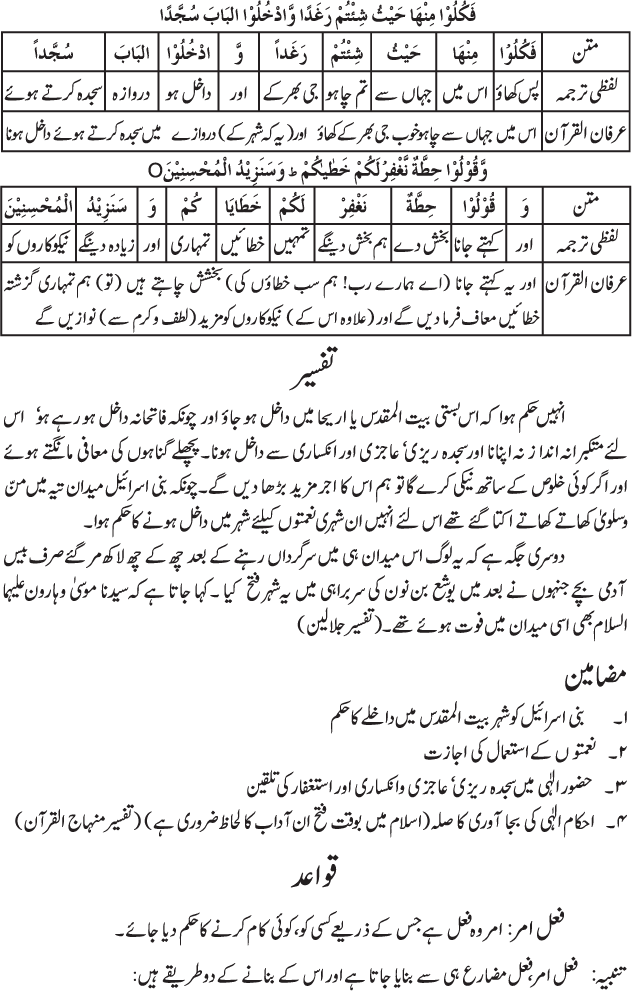 فَكُلُوْا مِنْهَا حَيْثُ شِئْتُمْ رَغَدًا وَّادْخُلُوْا الْبَابَ سُجَّدًا
متن فَكُلُوْا مِنْهَا حَيْثُ شِئْتُمْ رَغَداً وَّ ادْخُلُوْا الْبَابَ سُجَّداً
لفظی ترجمہ پس کھاؤ اس میں جہاں سے تم چاہو جی بھر کے اور داخل ہو دروازہ سجدہ کرتے ہوئے
عرفان القرآن اس میں جہاں سے چاہو خوب جی بھر کے کھاؤ اور (یہ کہ شہر کے) دروازے میں سجدہ کرتے ہوئے داخل ہونا
وَّقُوْلُوْا حِطَّةٌ نَّغْفِرْ لَكُمْ خَطٰيٰكُمْ ط وَسَنَزِيْدُ الْمُحْسِنِيْنَO
متن وَ قُوْلُوْا حِطَّةٌ نَغْفِرْ لَكُمْ خَطَايَا كُمْ وَ سَنَزِيْدُ الْمُحْسِنِيْنَ
لفظی ترجمہ اور کہتے جانا بخش دے ہم بخش دینگے تمہیں خطائیں تمہاری اور زیادہ دینگے نیکوکاروں کو
عرفان القرآن اور یہ کہتے جانا (اے ہمارے رب! ہم سب خطاؤں کی) بخشش چاہتے ہیں (تو) ہم تمہاری گزشتہ
خطائیں معاف فرما دیں گے اور (علاوہ اس کے) نیکوکاروں کو مزید (لطف و کرم سے) نوازیں گے
تفسیر
انہیں حکم ہوا کہ اس بستی بیت المقدس یا اریحا میں داخل ہو جاؤ اور چونکہ فاتحانہ داخل ہو رہے ہو‘ اس
لئے متکبرانہ انداز نہ اپنانا اور سجدہ ریزی‘ عاجزی اور انکساری سے داخل ہونا۔ پچھلے گناہوں کی معافی مانگتے ہوئے
اور اگر کوئی خلوص کے ساتھ نیکی کرے گا تو ہم اس کا اجر مزید بڑھا دیں گے۔ چونکہ بنی اسرائیل میدان تیہ میں منّ
وسلویٰ کھاتے کھاتے اکتا گئے تھے اس لئے انہیں ان شہری نعمتوں کیلئے شہر میں داخل ہونے کا حکم ہوا۔
دوسری جگہ ہے کہ یہ لوگ اس میدان ہی میں سرگرداں رہنے کے بعد چھ کے چھ لاکھ مر گئے صرف بیس
آدمی بچے جنہوں نے بعد میں یوشع بن نون کی سربراہی میں یہ شہر فتح کیا۔ کہا جاتا ہے کہ سیدنا موسیٰ و ہارون علیہما
السلام بھی اسی میدان میں فوت ہوئے تھے۔ (تفسیر جلالین)
مضامین
۱۔ بنی اسرائیل کو شہر بیت المقدس میں داخلے کا حکم
۲۔ نعمتوں کے استعمال کی اجازت
۳۔ حضور الٰہی میں سجدہ ریزی‘ عاجزی و انکساری اور استغفار کی تلقین
۴۔ احکام الٰہی کی بجا آوری کا صلہ (اسلام میں بوقت فتح ان آداب کا لحاظ ضروری ہے) (تفسیر منہاج القرآن)
قواعد
فعل امر: امر وہ فعل ہے جس کے ذریعے کسی کو، کوئی کام کرنے کا حکم دیا جائے۔
تنبیہ: فعل امر، فعل مضارع ہی سے بنایا جاتا ہے اور اس کے بنانے کے دو طریقے ہیں: